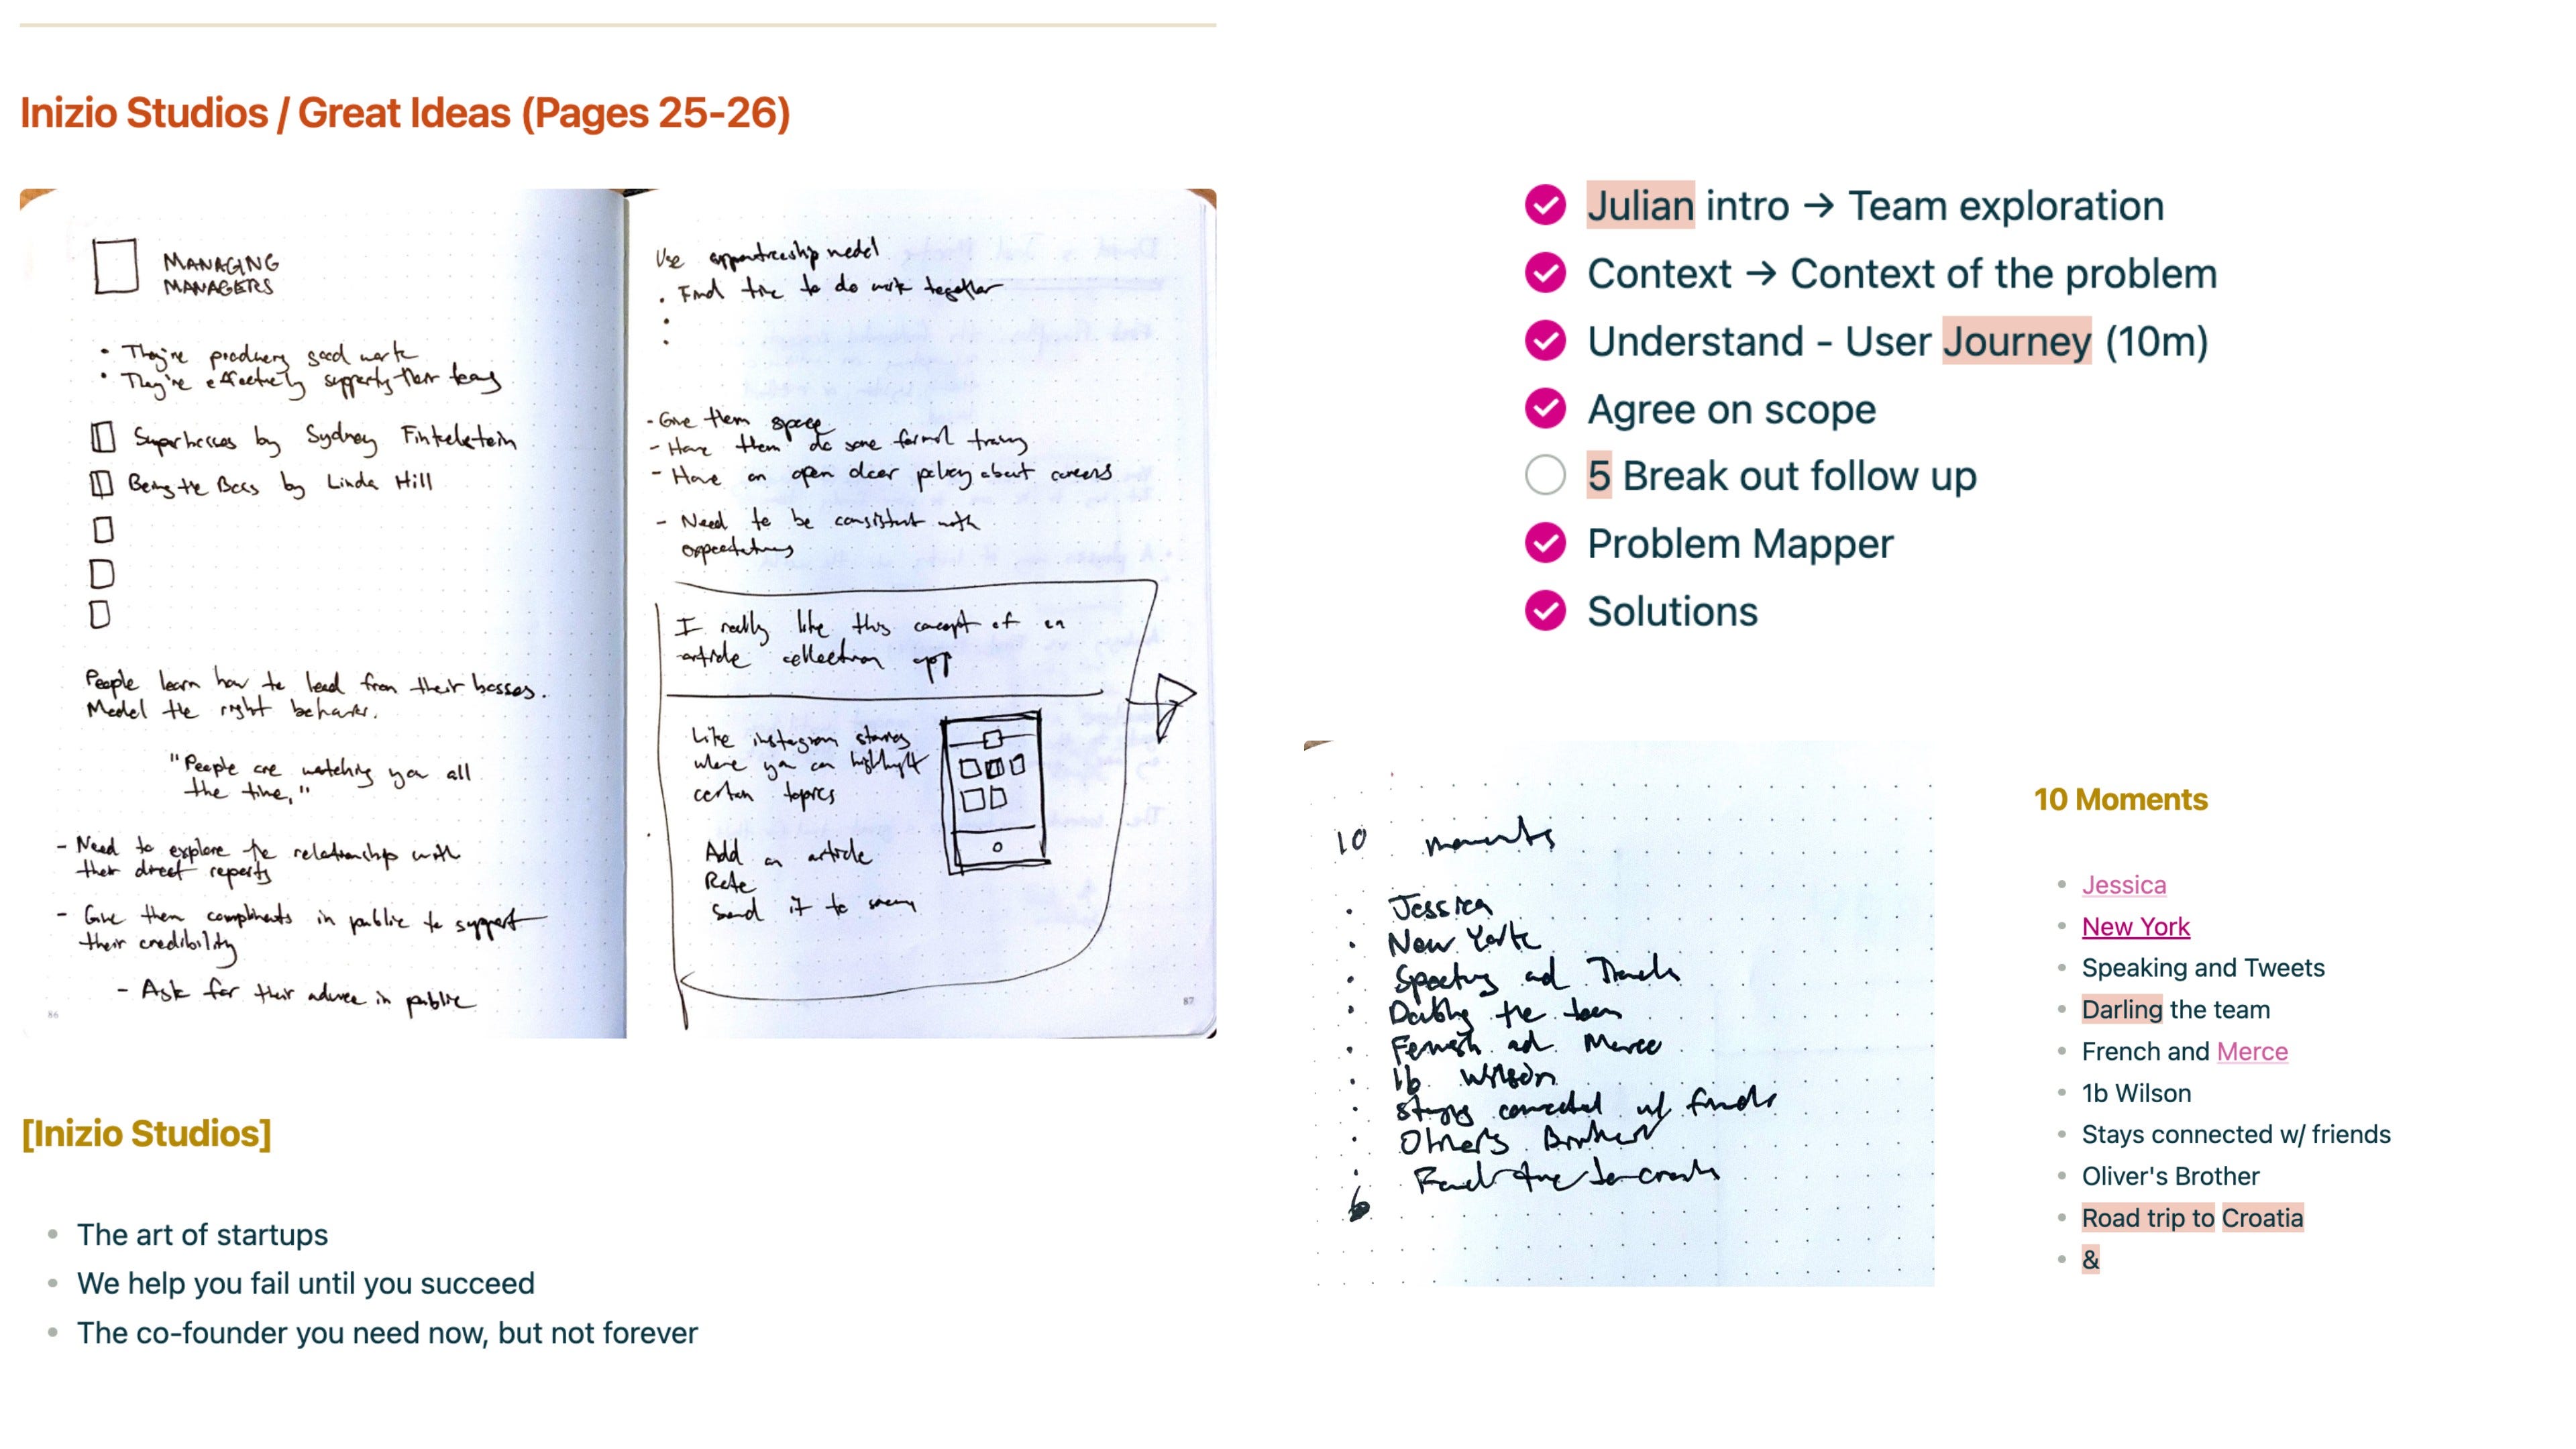 Inizio Studios / Great Ideas (Pages 25-26)
MANAGING
MANAGERS
• They're good work
• They're effectively their
Superbosses by Sydney Finkelstein
Being the Boss by Linda Hill
People learn how to lead from their bosses.
Model the right behavior.
"People are watching you all
the time,"
- Need to explore the relationship with
their direct reports
- Give them compliments in public to support
their credibility
- Ask for their advice in public
86
Use apprenticeship model
• Find time to do work together
•
•
- Give them space
- Have them do some formal training
- Have an open door policy about careers
- Need to be consistent with
expectations
I really like this concept of an
article collection app
Like instagram stories
where you can highlight
certain topics
Add an article
Rate
Send it to
87
[Inizio Studios]
• The art of startups
• We help you fail until you succeed
• The co-founder you need now, but not forever
Julian intro → Team exploration
Context → Context of the problem
Understand - User Journey (10m)
Agree on scope
5 Break out follow up
Problem Mapper
Solutions
10 moments
• Jessica
• New York
• and
• the team
• and Merce
• 1b Wilson
• connected w/ friends
•
•
10 Moments
• Jessica
• New York
• Speaking and Tweets
• Darling the team
• French and Merce
• 1b Wilson
• Stays connected w/ friends
• Oliver's Brother
• Road trip to Croatia
• &